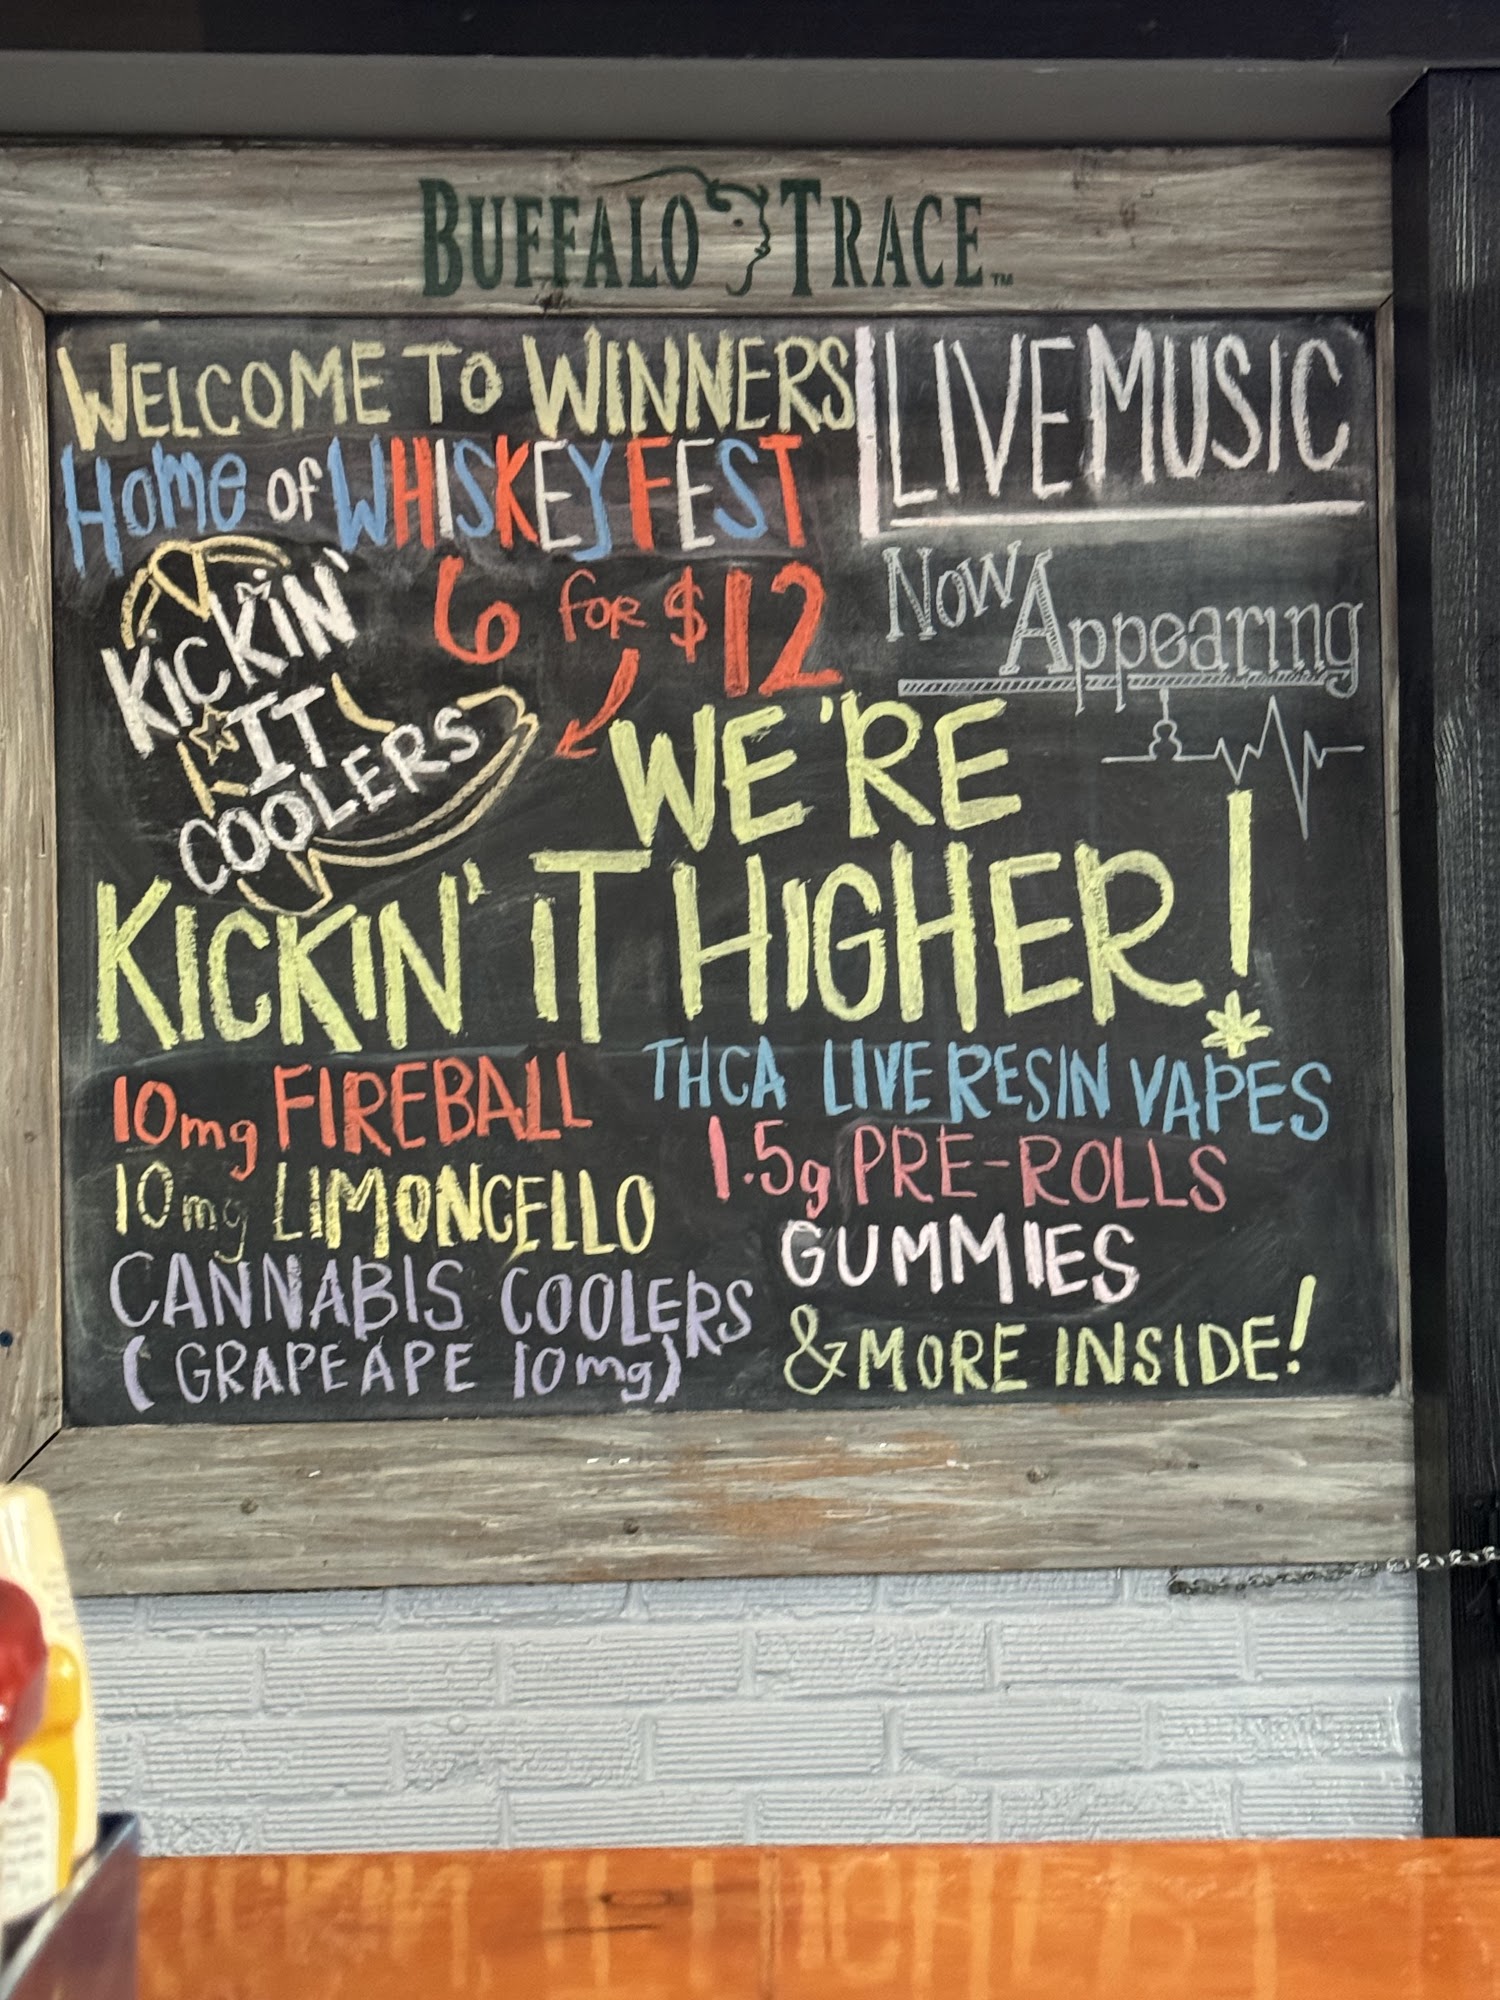 BUFFALO TRACE™
WELCOME TO WINNERS
HOME OF WHISKEY FEST
LIVE MUSIC
Now Appearing
6 FOR $12
KICKIN'
IT
COOLERS
WE'RE
KICKIN' IT HIGHER!
10mg FIREBALL
10mg LIMONCELLO
CANNABIS COOLERS
(GRAPE APE 10mg)
THCA LIVE RESIN VAPES
1.5g PRE-ROLLS
GUMMIES
& MORE INSIDE!